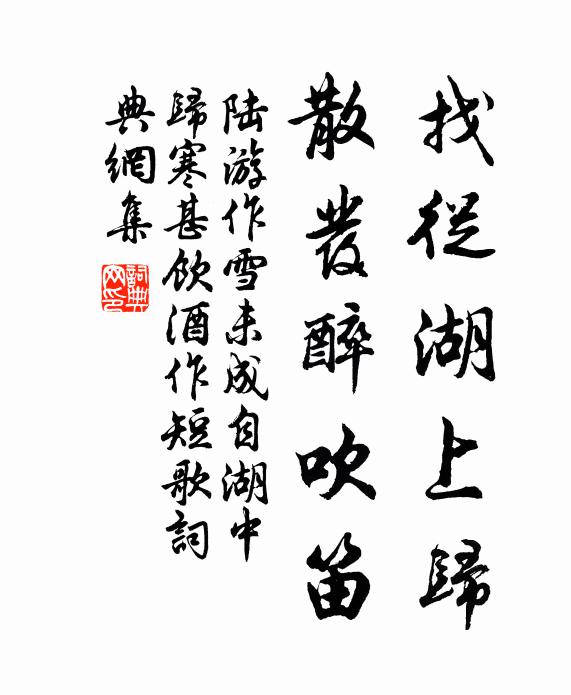 我從湖上歸
散發醉吹笛
陆游作雪未成自湖中
歸寒甚飲酒作短歌詞
典網集
詞典
网印